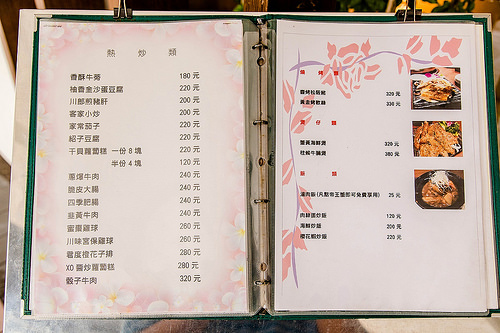 熱 炒 類
香酥牛蒡 180 元
柚香金沙蛋豆腐 220 元
川郎煎豬肝 200 元
客家小炒 200 元
家常茄子 220 元
紹子豆腐 220 元
干貝蘿蔔糕 一份 8 塊 220 元
半份 4 塊 120 元
蔥爆牛肉 240 元
脆皮大腸 240 元
四季肥腸 240 元
韭黃牛肉 240 元
蜜棗雞球 260 元
川味宮保雞球 260 元
君度橙花子排 280 元
XO 醬炒蘿蔔糕 280 元
骰子牛肉 320 元
燒 烤 類
320 元
黃金烤軟絲 330 元
煲 仔 類
蟹黃海鮮煲 320 元
柱候牛腩煲 380 元
飯 類
滷肉飯(凡點帝王蟹即可免費享用) 25 元
肉絲蛋炒飯 120 元
海鮮炒飯 200 元
櫻花蝦炒飯 220 元